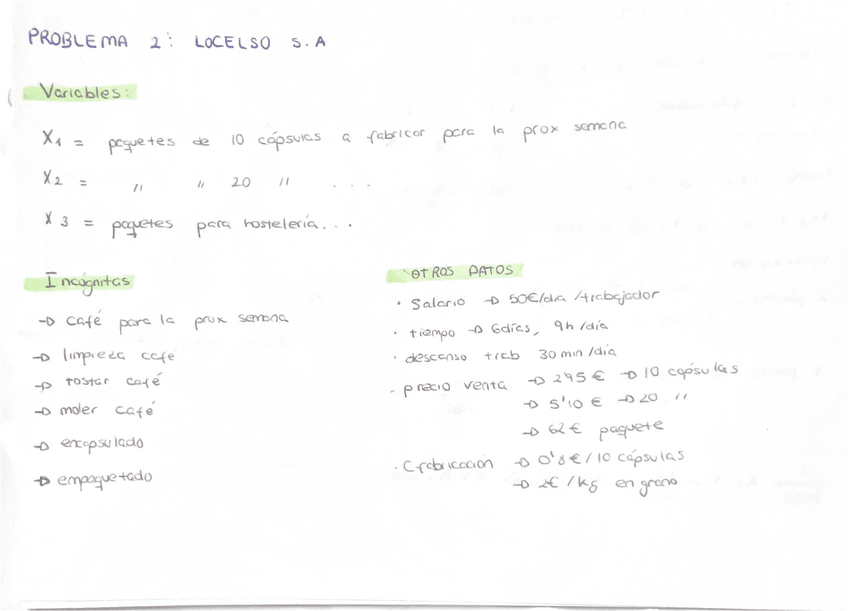 PROBLEMA 2: LOCELSO S.A
Variables:
X1 = paquetes de 10 cápsulas a fabricar para la prox semana
X2 = " " 20 " ...
X3 = paquetes para hostelería...
Incógnitas
→ café para la prox semana
→ limpieza café
→ tostar café
→ moler café
→ encapsulado
→ empaquetado
OTROS DATOS
· Salario → 50€/dia/trabajador
· tiempo → 6días, 9h/día
· descanso trab 30 min/día
· precio venta → 2'95 € → 10 cápsulas
→ 5'10 € → 20 "
→ 62€ paquete
· Cfabricación → 0'8€/10 cápsulas
→ 2€/kg en grano